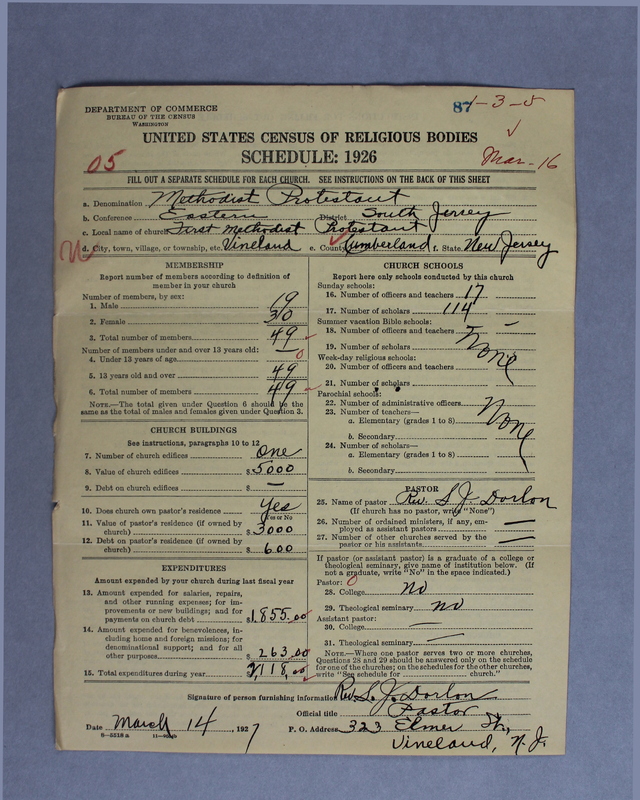 DEPARTMENT OF COMMERCE
BUREAU OF THE CENSUS
WASHINGTON
87 1-3-5
UNITED STATES CENSUS OF RELIGIOUS BODIES
SCHEDULE: 1926
05
Mar-16
FILL OUT A SEPARATE SCHEDULE FOR EACH CHURCH. SEE INSTRUCTIONS ON THE BACK OF THIS SHEET
a. Denomination Methodist Protestant
b. Conference Eastern District South Jersey
c. Local name of church First Methodist Protestant
d. City, town, village, or township, etc. Vineland e. County Cumberland f. State New Jersey
MEMBERSHIP
Report number of members according to definition of
member in your church
Number of members, by sex:
1. Male 19
2. Female 30
3. Total number of members 49
Number of members under and over 13 years old:
4. Under 13 years of age — 0
5. 13 years old and over 49
6. Total number of members 49
NOTE.—The total given under Question 6 should be the
same as the total of males and females given under Question 3.
CHURCH BUILDINGS
See instructions, paragraphs 10 to 12
7. Number of church edifices One
8. Value of church edifices $5000
9. Debt on church edifices $ —
10. Does church own pastor's residence? Yes
Yes or No
11. Value of pastor's residence (if owned by
church) $3000
12. Debt on pastor's residence (if owned by
church) $600
EXPENDITURES
Amount expended by your church during last fiscal year
13. Amount expended for salaries, repairs,
and other running expenses; for im-
provements or new buildings; and for
payments on church debt $1855.00
14. Amount expended for benevolences, in-
cluding home and foreign missions; for
denominational support; and for all
other purposes $263.00
15. Total expenditures during year $2,118.00
CHURCH SCHOOLS
Report here only schools conducted by this church
Sunday schools:
16. Number of officers and teachers 17
17. Number of scholars 114
Summer vacation Bible schools:
18. Number of officers and teachers —
19. Number of scholars None
Week-day religious schools:
20. Number of officers and teachers
21. Number of scholars
Parochial schools:
22. Number of administrative officers None
23. Number of teachers—
a. Elementary (grades 1 to 8)
b. Secondary
24. Number of scholars—
a. Elementary (grades 1 to 8)
b. Secondary
PASTOR
25. Name of pastor Rev. S. J. Dorlon
(If church has no pastor, write "None")
26. Number of ordained ministers, if any, em-
ployed as assistant pastors —
27. Number of other churches served by the
pastor or his assistants —
If pastor (or assistant pastor) is a graduate of a college or
theological seminary, give name of institution below. (If
not a graduate, write "No" in the space indicated.)
Pastor: 0
28. College No
29. Theological seminary No
Assistant pastor:
30. College —
31. Theological seminary —
NOTE.—Where one pastor serves two or more churches,
Questions 28 and 29 should be answered only on the schedule
for one of the churches; on the schedules for the other churches,
write "See schedule for church."
Signature of person furnishing information Rev. S. J. Dorlon
Official title Pastor
Date March 14, 1927 P. O. Address 323 Elmer St.,
Vineland, N. J.